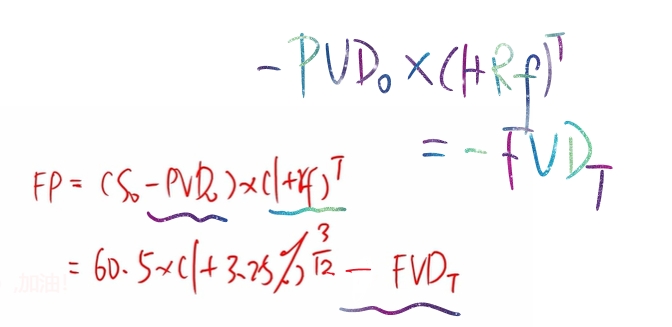 - PVD₀ × (1+Rf)^T
= - FVD_T
FP = (S₀ - PVD₀) × (1+rf)^T
= 60.5 × (1+3.25%)^(3/12) - FVD_T
加油!